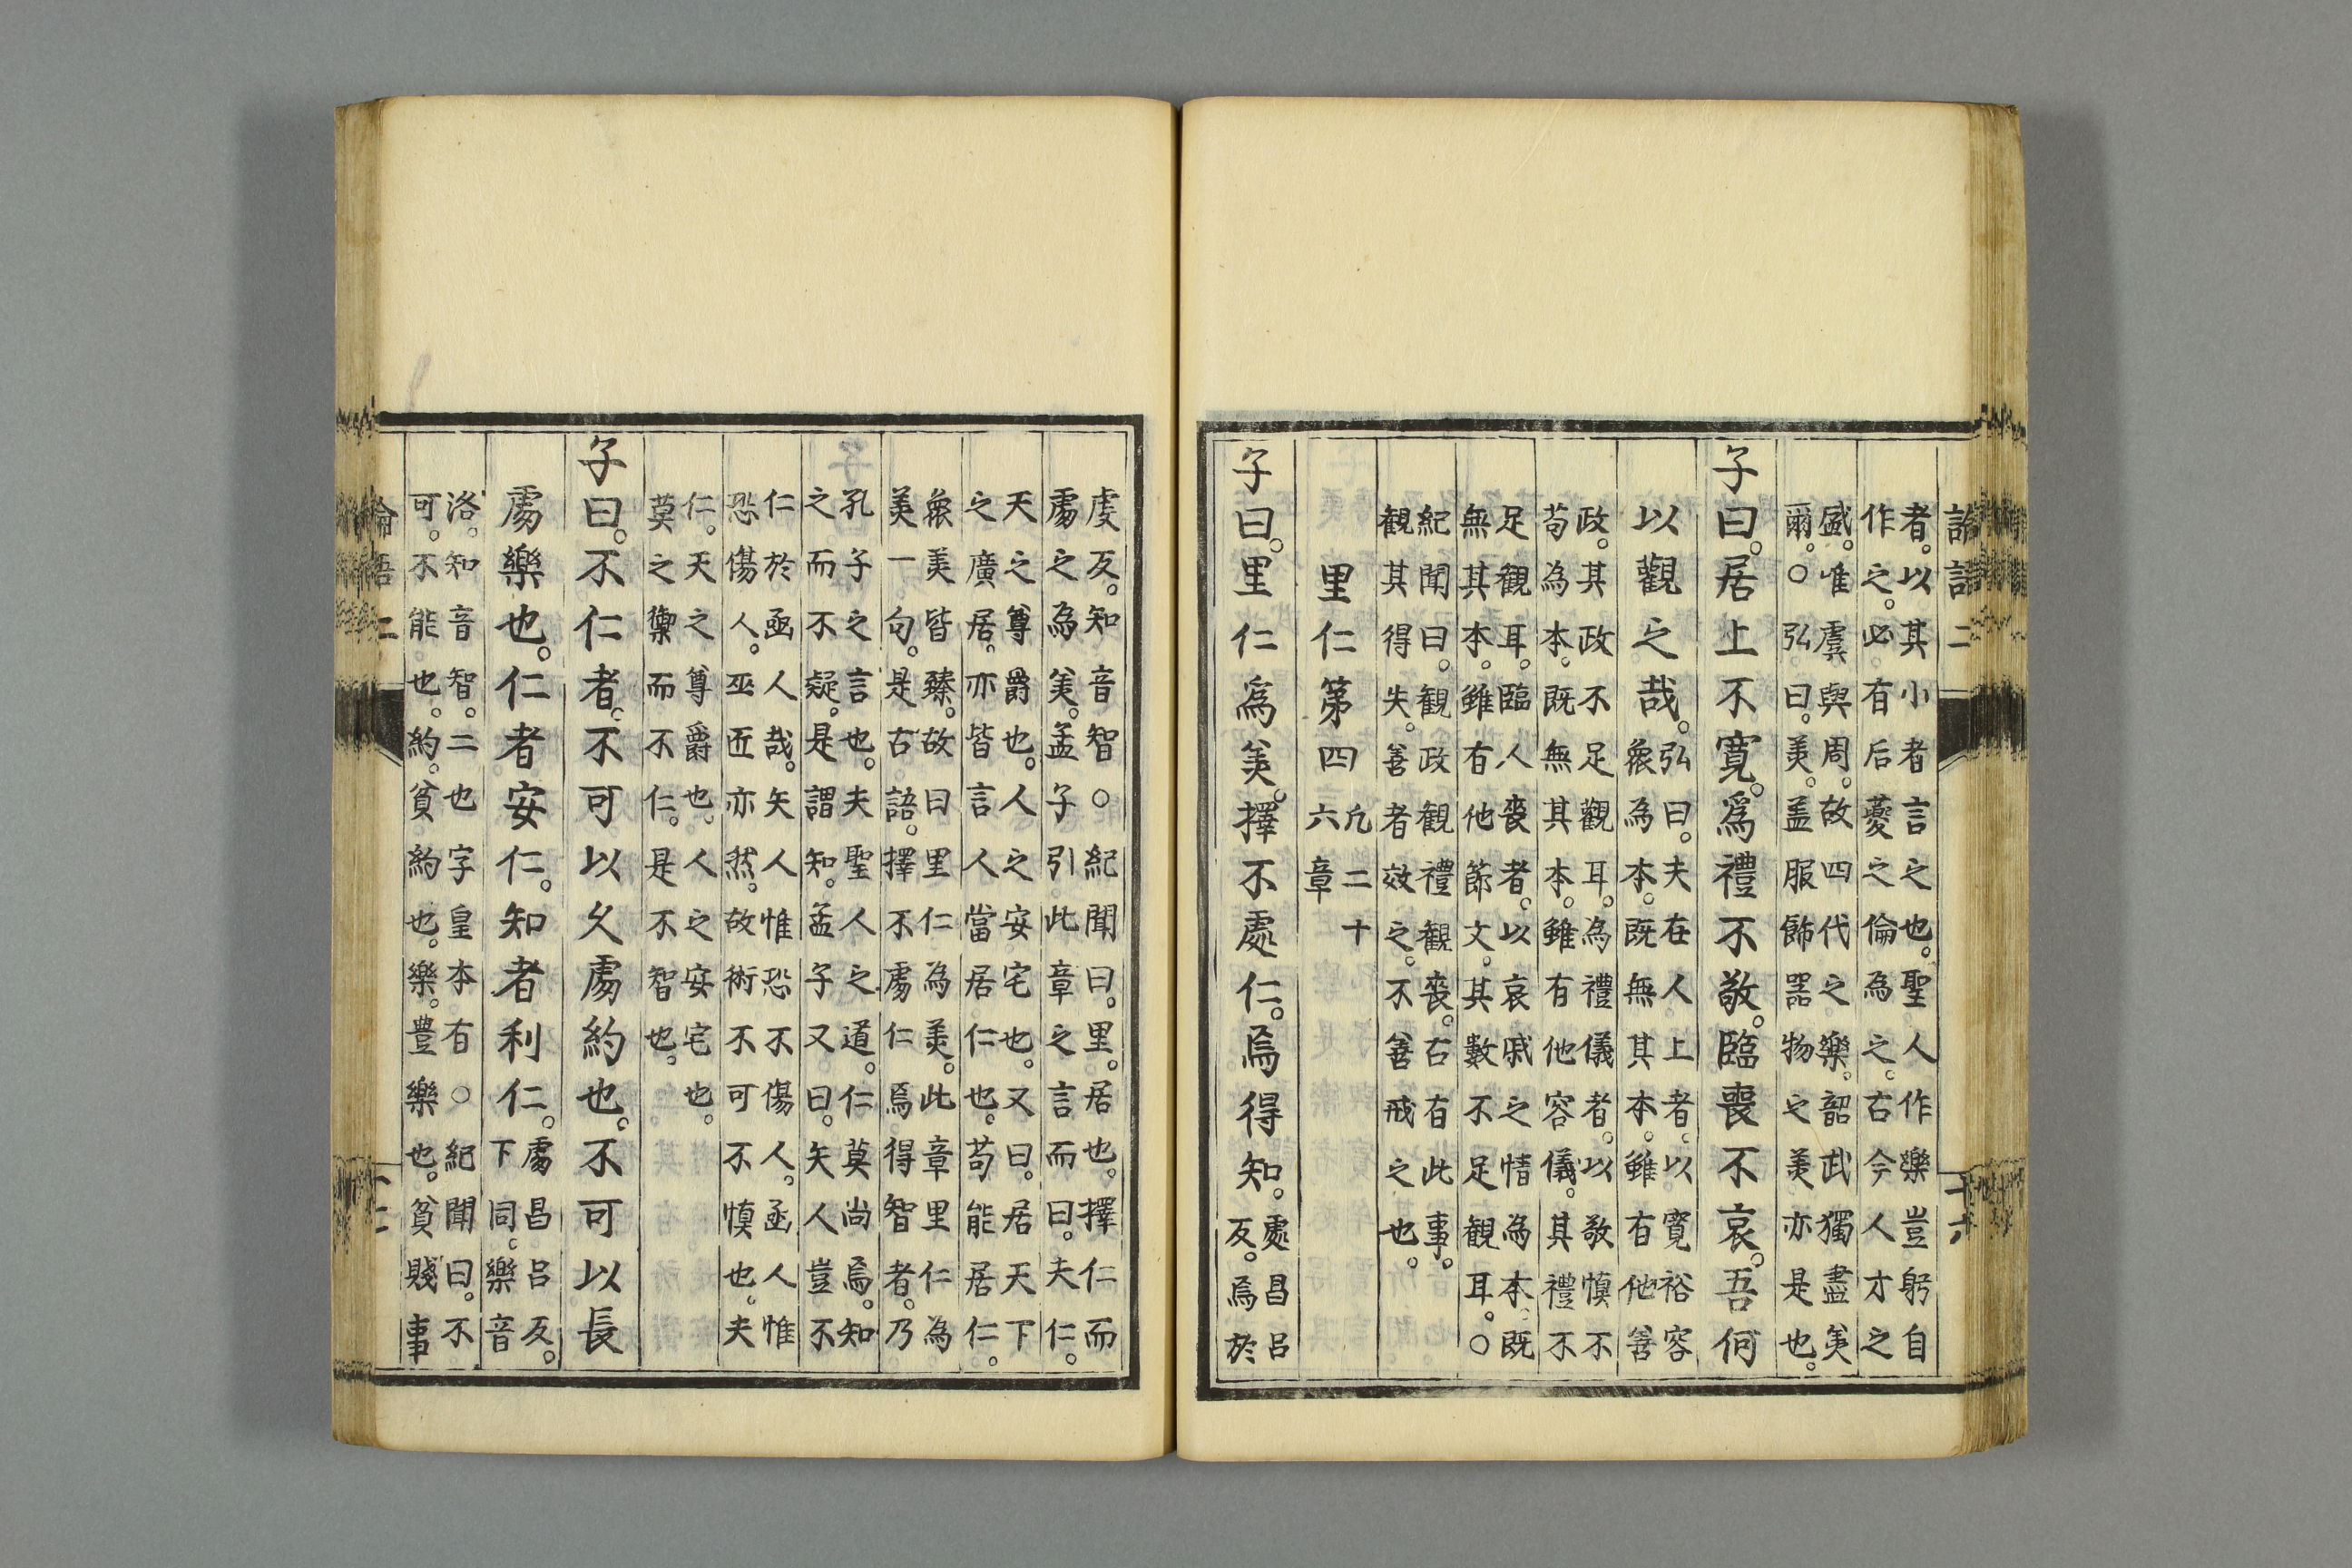 者。以其小者言之也。聖人作樂豈躬自
作之。必有后夔之倫為之。古今人才之
盛。唯虞與周。故四代之樂。韶武獨盡美
爾。○弘曰。美。盖服飾器物之美。亦是也。
子曰。居上不寬。爲禮不敬。臨喪不哀。吾何
以觀之哉。
弘曰。夫在人上者。以寛裕容
衆為本。既無其本。雖有他善
政。其政不足觀耳。為禮儀者。以敬慎不
苟為本。既無其本。雖有他容儀。其禮不
足観耳。臨人喪者。以哀戚之情為本。既
無其本。雖有他節文。其數不足観耳。○
紀聞曰。観政観禮観喪。古有此事。
観其得失。善者效之。不善戒之也。
里仁第四
凡二十
六章
子曰。里仁爲美。擇不處仁。焉得知。
處昌呂
反。焉於
虔反。知音智。○紀聞曰。里。居也。擇仁而
處之為美。孟子引此章之言而曰。夫仁。
天之尊爵也。人之安宅也。又曰。居天下
之廣居。亦皆言人當居仁也。苟能居仁。
衆美皆臻。故曰里仁為美。此章里仁為
美一句。是古語。擇不處仁焉得智者。乃
孔子之言也。夫聖人之道。仁莫尚焉。知
之而不疑。是謂知。孟子又曰。矢人豈不
仁於函人哉。矢人惟恐不傷人。函人惟
恐傷人。巫匠亦然。故術不可不慎也。夫
仁。天之尊爵也。人之安宅也。
莫之禦而不仁。是不智也。
子曰。不仁者。不可以久處約也。不可以長
處樂也。仁者安仁。知者利仁。
處昌呂反。
下同。樂音
洛。知音智。二也字皇本有○紀聞曰。不
可。不能也。約。貧約也。樂。豊樂也。貧賤事
論語二
十六